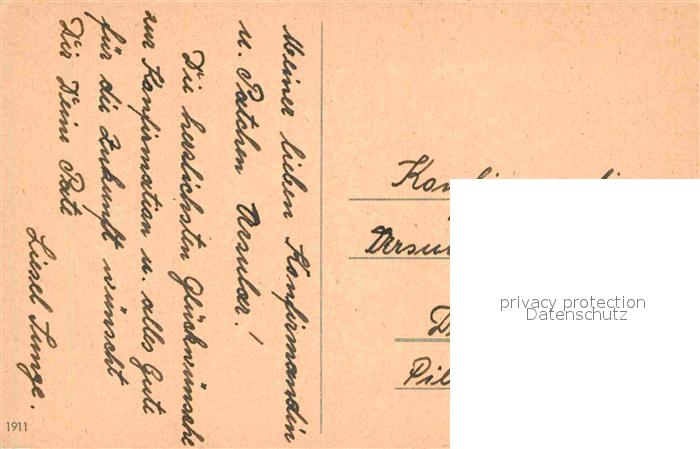 Meiner lieben Konfirmandin
u. Patchen Ursular!
Die herzlichsten Glückwünsche
zur Konfirmation u. alles Gute
für die Zukunft wünscht
Dir Deine Pate
Liesel Junge.
Ursu
D
Pil
privacy protection
Datenschutz
1911